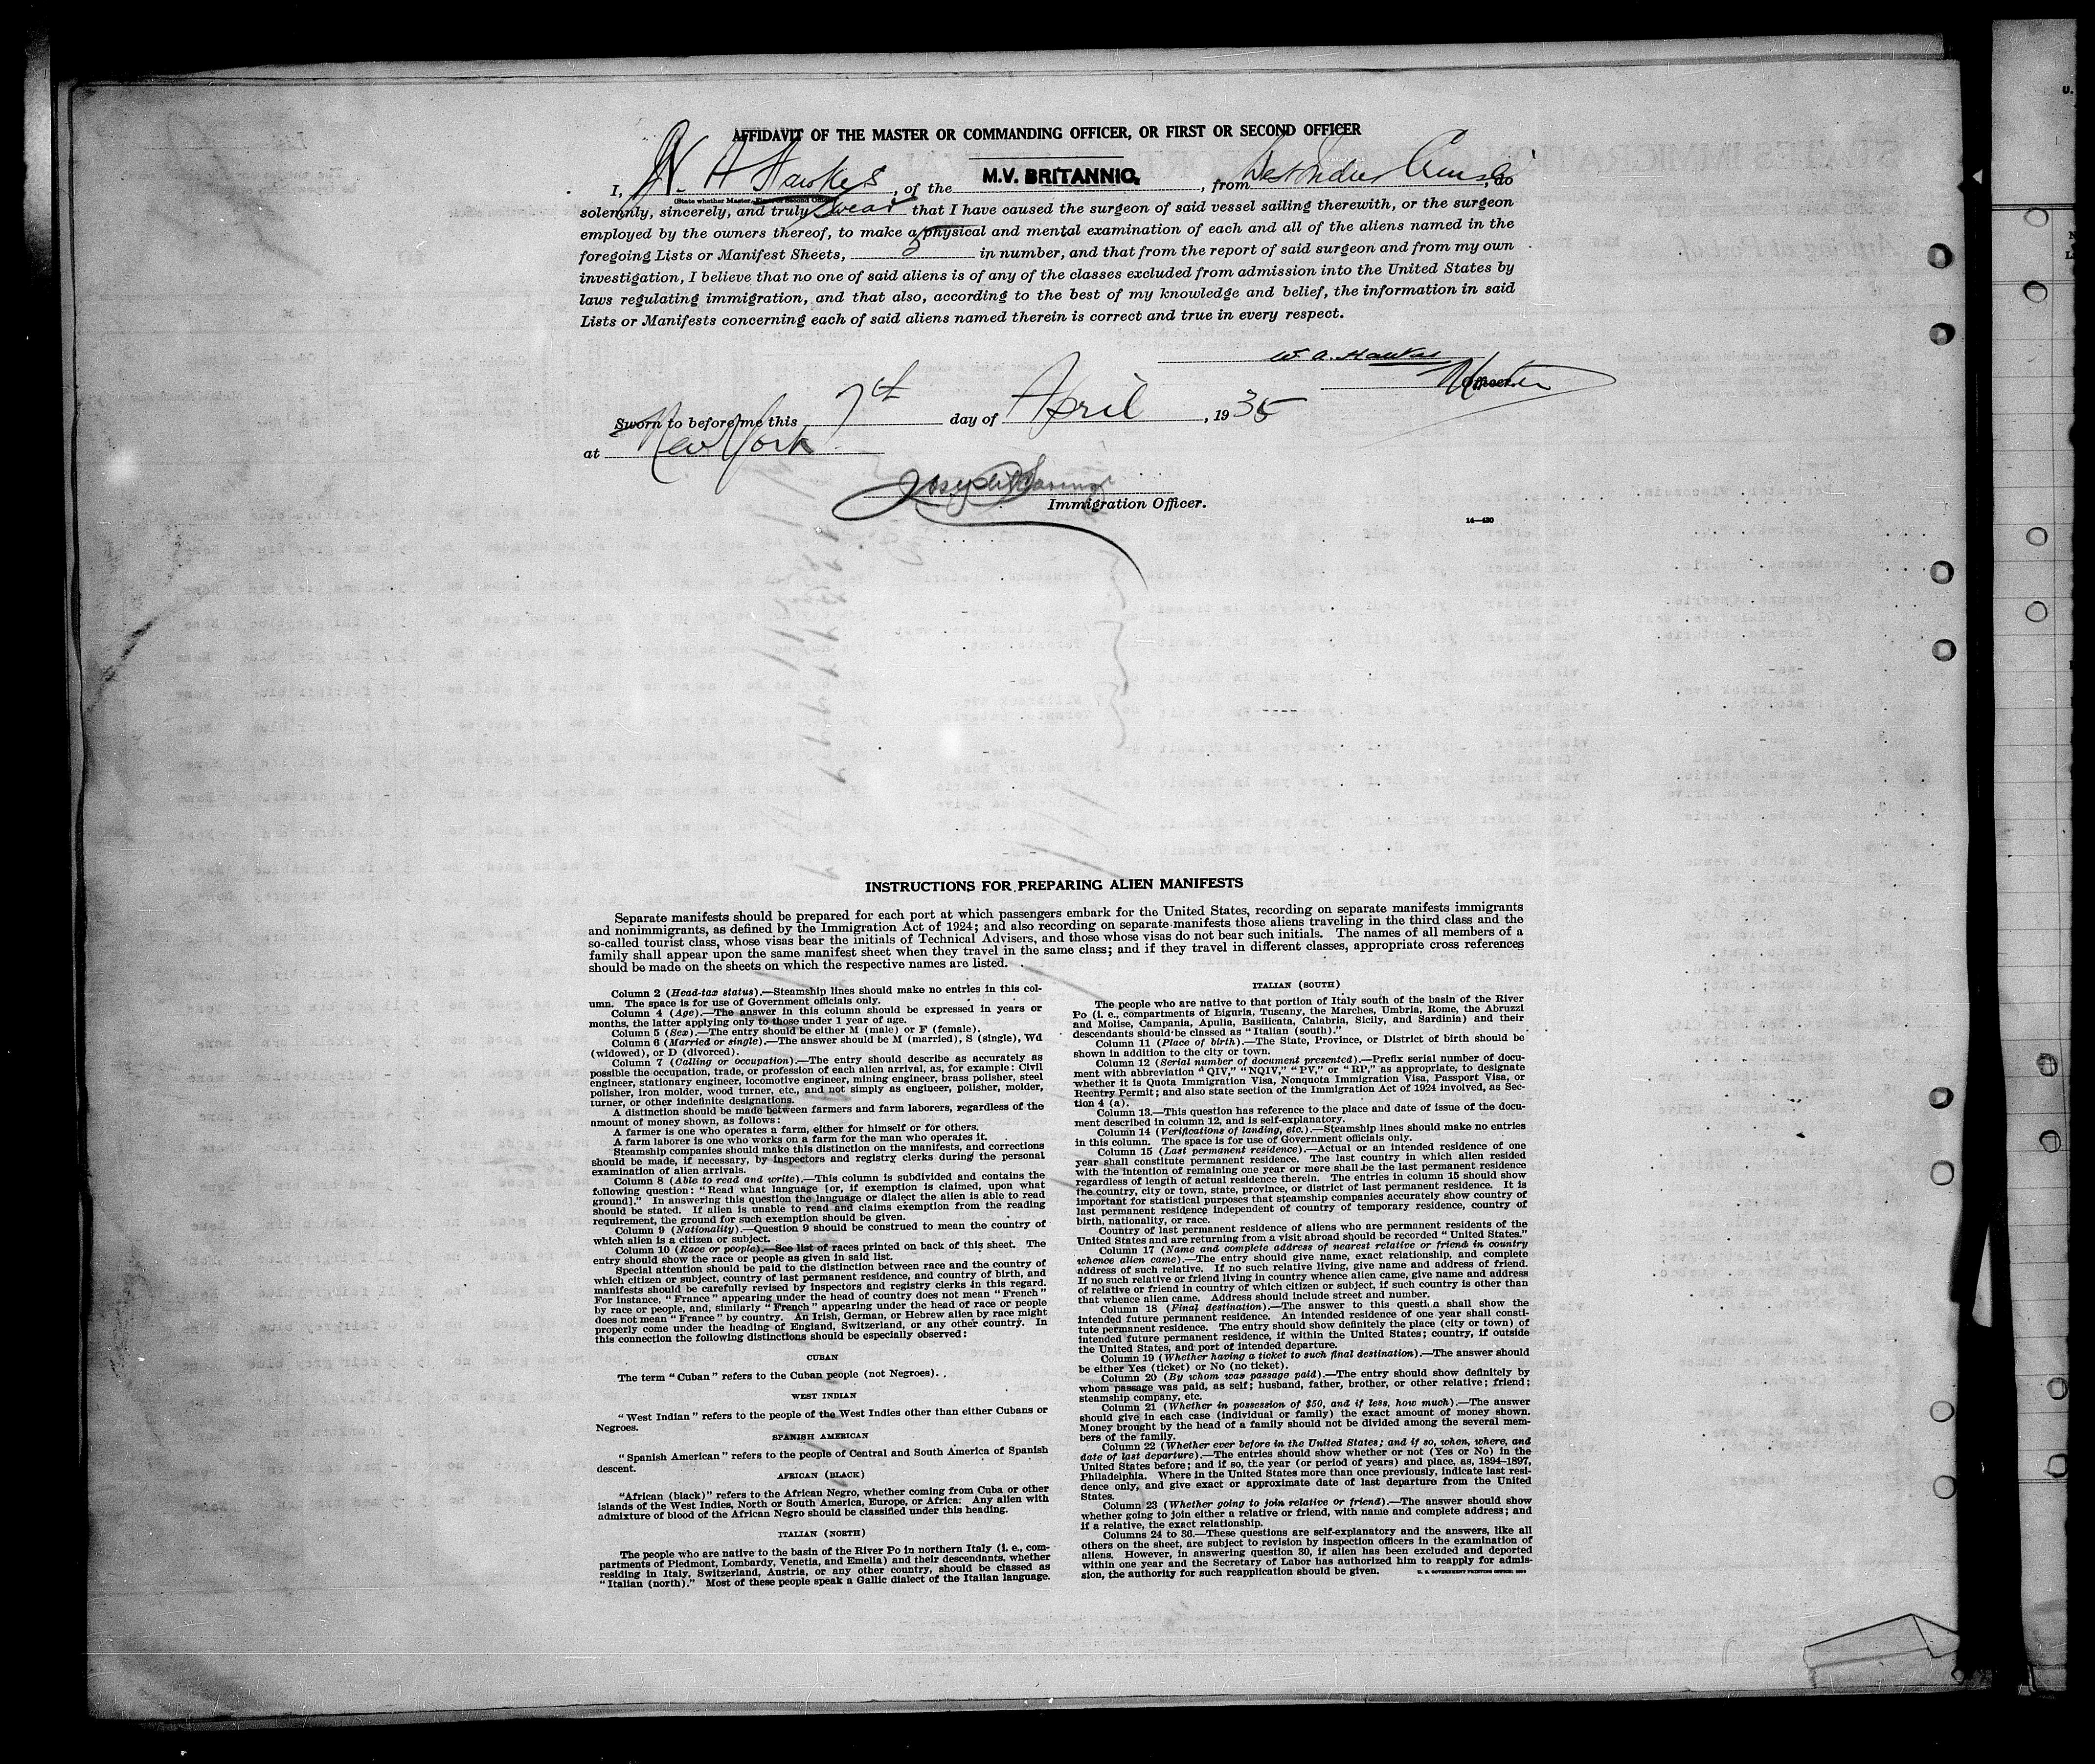 AFFIDAVIT OF THE MASTER OR COMMANDING OFFICER, OR FIRST OR SECOND OFFICER
I, W. A. Hawkes, of the M.V. BRITANNIC, from West Indies Cruise, do
(State whether Master, First or Second Officer)
solemnly, sincerely, and truly swear that I have caused the surgeon of said vessel sailing therewith, or the surgeon
employed by the owners thereof, to make a physical and mental examination of each and all of the aliens named in the
foregoing Lists or Manifest Sheets, 3 in number, and that from the report of said surgeon and from my own
investigation, I believe that no one of said aliens is of any of the classes excluded from admission into the United States by
laws regulating immigration, and that also, according to the best of my knowledge and belief, the information in said
Lists or Manifests concerning each of said aliens named therein is correct and true in every respect.
W. A. Hawkes
Master Officer.
Sworn to before me this 7th day of April, 1935
at New York
Joseph
Immigration Officer.
14—430
INSTRUCTIONS FOR PREPARING ALIEN MANIFESTS
Separate manifests should be prepared for each port at which passengers embark for the United States, recording on separate manifests immigrants
and nonimmigrants, as defined by the Immigration Act of 1924; and also recording on separate manifests those aliens traveling in the third class and the
so-called tourist class, whose visas bear the initials of Technical Advisers, and those whose visas do not bear such initials. The names of all members of a
family shall appear upon the same manifest sheet when they travel in the same class; and if they travel in different classes, appropriate cross references
should be made on the sheets on which the respective names are listed.
Column 2 (Head-tax status).—Steamship lines should make no entries in this col-
umn. The space is for use of Government officials only.
Column 4 (Age).—The answer in this column should be expressed in years or
months, the latter applying only to those under 1 year of age.
Column 5 (Sex).—The entry should be either M (male) or F (female).
Column 6 (Married or single).—The answer should be M (married), S (single), Wd
(widowed), or D (divorced).
Column 7 (Calling or occupation).—The entry should describe as accurately as
possible the occupation, trade, or profession of each alien arrival, as, for example: Civil
engineer, stationary engineer, locomotive engineer, mining engineer, brass polisher, steel
polisher, iron molder, wood turner, etc., and not simply as engineer, polisher, molder,
turner, or other indefinite designations.
A distinction should be made between farmers and farm laborers, regardless of the
amount of money shown, as follows:
A farmer is one who operates a farm, either for himself or for others.
A farm laborer is one who works on a farm for the man who operates it.
Steamship companies should make this distinction on the manifests, and corrections
should be made, if necessary, by inspectors and registry clerks during the personal
examination of alien arrivals.
Column 8 (Able to read and write).—This column is subdivided and contains the
following question: "Read what language [or, if exemption is claimed, upon what
ground]." In answering this question the language or dialect the alien is able to read
should be stated. If alien is unable to read and claims exemption from the reading
requirement, the ground for such exemption should be given.
Column 9 (Nationality).—Question 9 should be construed to mean the country of
which alien is a citizen or subject.
Column 10 (Race or people).—See list of races printed on back of this sheet. The
entry should show the race or people as given in said list.
Special attention should be paid to the distinction between race and the country of
which citizen or subject, country of last permanent residence, and country of birth, and
manifests should be carefully revised by inspectors and registry clerks in this regard.
For instance, "France" appearing under the head of country does not mean "French"
by race or people, and, similarly "French" appearing under the head of race or people
does not mean "France" by country. An Irish, German, or Hebrew alien by race might
properly come under the heading of England, Switzerland, or any other country. In
this connection the following distinctions should be especially observed:
CUBAN
The term "Cuban" refers to the Cuban people (not Negroes).
WEST INDIAN
"West Indian" refers to the people of the West Indies other than either Cubans or
Negroes.
SPANISH AMERICAN
"Spanish American" refers to the people of Central and South America of Spanish
descent.
AFRICAN (BLACK)
"African (black)" refers to the African Negro, whether coming from Cuba or other
islands of the West Indies, North or South America, Europe, or Africa. Any alien with
admixture of blood of the African Negro should be classified under this heading.
ITALIAN (NORTH)
The people who are native to the basin of the River Po in northern Italy (i. e., com-
partments of Piedmont, Lombardy, Venetia, and Emelia) and their descendants, whether
residing in Italy, Switzerland, Austria, or any other country, should be classed as
"Italian (north)." Most of these people speak a Gallic dialect of the Italian language.
ITALIAN (SOUTH)
The people who are native to that portion of Italy south of the basin of the River
Po (i. e., compartments of Liguria, Tuscany, the Marches, Umbria, Rome, the Abruzzi
and Molise, Campania, Apulia, Basilicata, Calabria, Sicily, and Sardinia) and their
descendants should be classed as "Italian (south)."
Column 11 (Place of birth).—The State, Province, or District of birth should be
shown in addition to the city or town.
Column 12 (Serial number of document presented).—Prefix serial number of docu-
ment with abbreviation "QIV," "NQIV," "PV," or "RP," as appropriate, to designate
whether it is Quota Immigration Visa, Nonquota Immigration Visa, Passport Visa, or
Reentry Permit; and also state section of the Immigration Act of 1924 involved, as Sec-
tion 4 (a).
Column 13.—This question has reference to the place and date of issue of the docu-
ment described in column 12, and is self-explanatory.
Column 14 (Verifications of landing, etc.).—Steamship lines should make no entries
in this column. The space is for use of Government officials only.
Column 15 (Last permanent residence).—Actual or an intended residence of one
year shall constitute permanent residence. The last country in which alien resided
with the intention of remaining one year or more shall be the last permanent residence
regardless of length of actual residence therein. The entries in column 15 should show
the country, city or town, state, province, or district of last permanent residence. It is
important for statistical purposes that steamship companies accurately show country of
last permanent residence independent of country of temporary residence, country of
birth, nationality, or race.
Country of last permanent residence of aliens who are permanent residents of the
United States and are returning from a visit abroad should be recorded "United States."
Column 17 (Name and complete address of nearest relative or friend in country
whence alien came).—The entry should give name, exact relationship, and complete
address of such relative. If no such relative living, give name and address of friend.
If no such relative or friend living in country whence alien came, give name and address
of relative or friend in country of which citizen or subject, if such country is other than
that whence alien came. Address should include street and number.
Column 18 (Final destination).—The answer to this question shall show the
intended future permanent residence. An intended residence of one year shall consti-
tute permanent residence. The entry should show definitely the place (city or town) of
intended future permanent residence, if within the United States; country, if outside
the United States, and port of intended departure.
Column 19 (Whether having a ticket to such final destination).—The answer should
be either Yes (ticket) or No (no ticket).
Column 20 (By whom was passage paid).—The entry should show definitely by
whom passage was paid, as self; husband, father, brother, or other relative; friend;
steamship company, etc.
Column 21 (Whether in possession of $50, and if less, how much).—The answer
should give in each case (individual or family) the exact amount of money shown.
Money brought by the head of a family should not be divided among the several mem-
bers of the family.
Column 22 (Whether ever before in the United States; and if so, when, where, and
date of last departure).—The entries should show whether or not (Yes or No) in the
United States before; and if so, the year (or period of years) and place, as, 1894–1897,
Philadelphia. Where in the United States more than once previously, indicate last resi-
dence only, and give exact or approximate date of last departure from the United
States.
Column 23 (Whether going to join relative or friend).—The answer should show
whether going to join either a relative or friend, with name and complete address; and
if a relative, the exact relationship.
Columns 24 to 36.—These questions are self-explanatory and the answers, like all
others on the sheet, are subject to revision by inspection officers in the examination of
aliens. However, in answering question 30, if alien has been excluded and deported
within one year and the Secretary of Labor has authorized him to reapply for admis-
sion, the authority for such reapplication should be given.
U. S. GOVERNMENT PRINTING OFFICE: